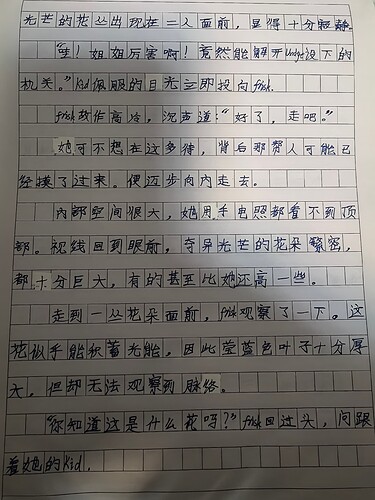 光芒的花丛出现在二人面前，显得十分寂静。
“哇！姐姐厉害啊！竟然能解开Judge设下的
机关。”Kid佩服的目光立即投向frisk.
frisk故作高冷，沉声道：“好了，走吧。”
她可不想在这多待，背后那帮人可能已
经摸了过来。便迈步向内走去。
内部空间很大，她用手电照都看不到顶
部。视线回到眼前，奇异光芒的花朵繁密，
都十分巨大，有的甚至比她还高一些。
走到一丛花朵面前，frisk观察了一下。这
花似乎能积蓄光能，因此莹蓝色叶子十分厚
大，但却无法观察到脉络。
“你知道这是什么花吗？”frisk回过头，问跟
着她的Kid.